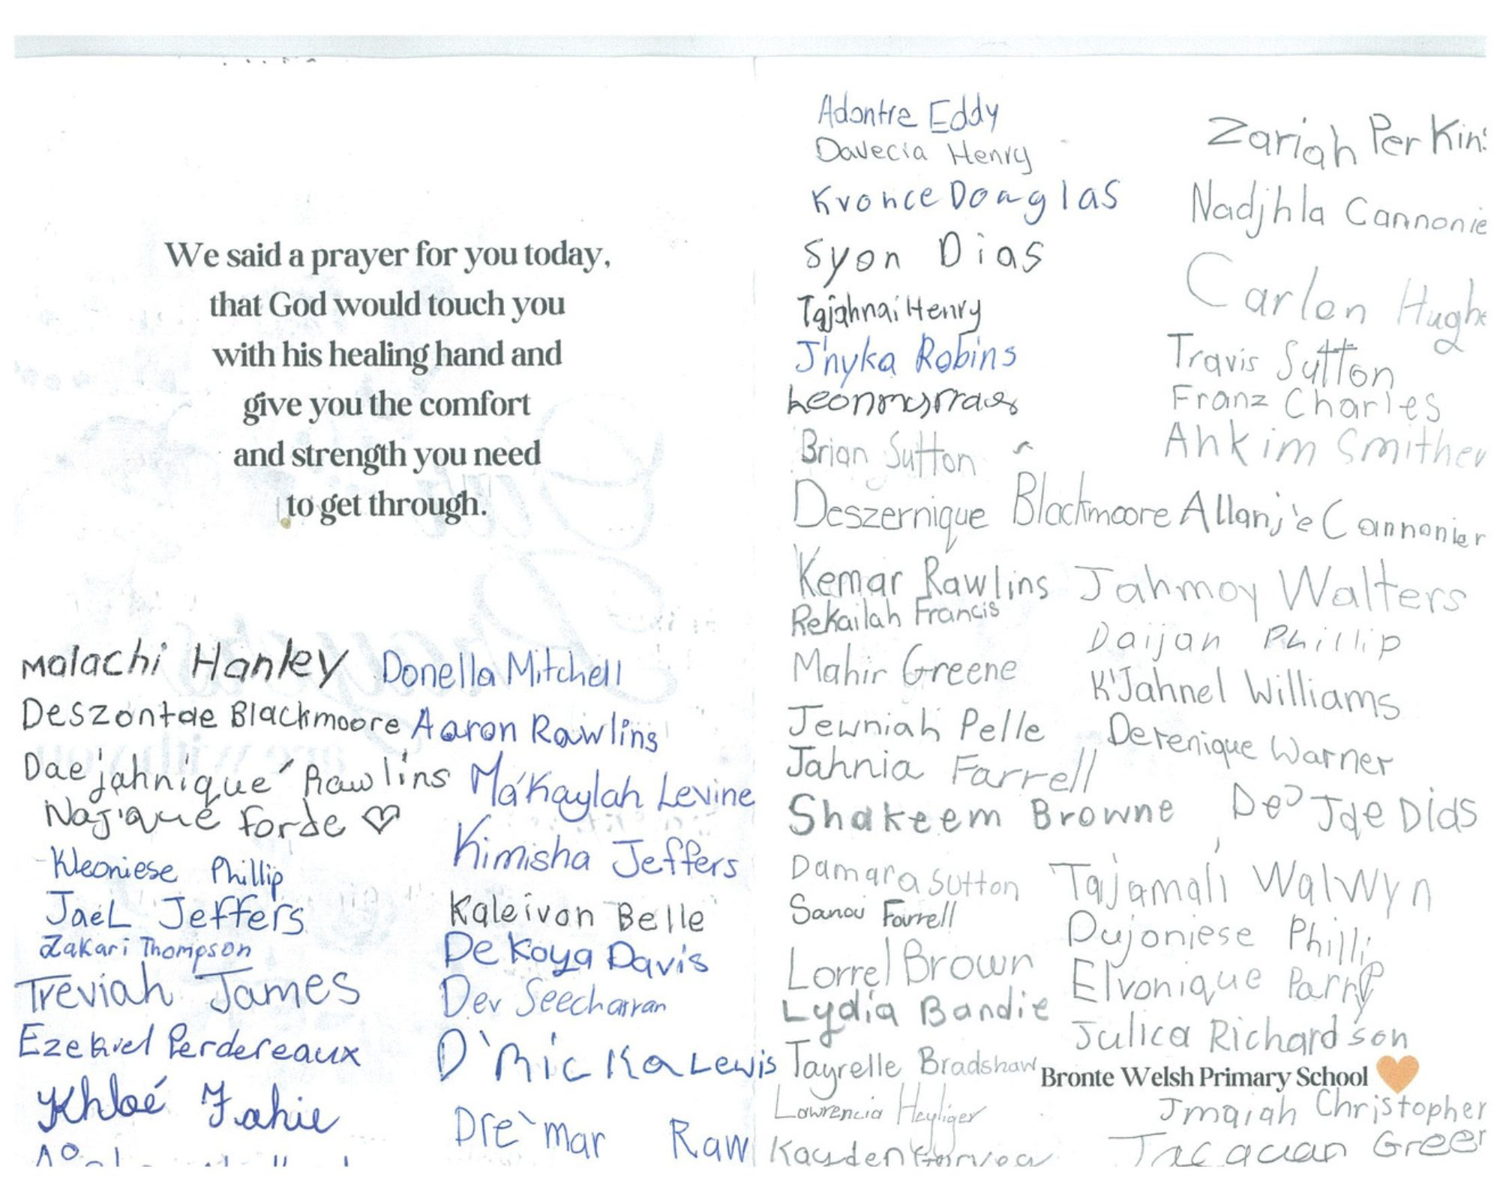 We said a prayer for you today,
that God would touch you
with his healing hand and
give you the comfort
and strength you need
to get through.
Malachi Hanley
Deszontae Blackmoore
Dae'jahn'ique' Rawlins
Naj'que Forde ♡
Kleoniese Phillip
Jaél Jeffers
Zakari Thompson
Treviah James
Ezekiel Perdereaux
Khloé Fahie
Donella Mitchell
Aaron Rawlins
Má'Kaylah Levine
Kimisha Jeffers
Kaleivon Belle
DeKoya Davis
Dev Seecharran
D'Nicka Lewis
Dre'mar Raw
Adontre Eddy
Davecia Henry
Kvonce Douglas
Syon Dias
Tajahnai Henry
J'nyka Robins
Brian Sutton
Deszernique Blackmoore
Kemar Rawlins
Rekailah Francis
Mahir Greene
Jewniah Pelle
Jahnia Farrell
Shakeem Browne
Damara Sutton
Sanai Farrell
Lorrel Brown
Lydia Bandie
Tayrelle Bradshaw
Lawrencia Heyliger
Kayden
Zariah Perkins
Nadjhla Cannonie
Carlon Hughe
Travis Sutton
Franz Charles
Ahkim Smithen
Allanj'e Cannonier
Jahmoy Walters
Daijan Phillip
K'Jahnel Williams
Derenique Warner
De'Jae Dias
Tajamali Walwyn
Dujoniese Phillip
Elvonique Parry
Julica Richardson
Bronte Welsh Primary School 🧡
Jmaiah Christopher
Greer